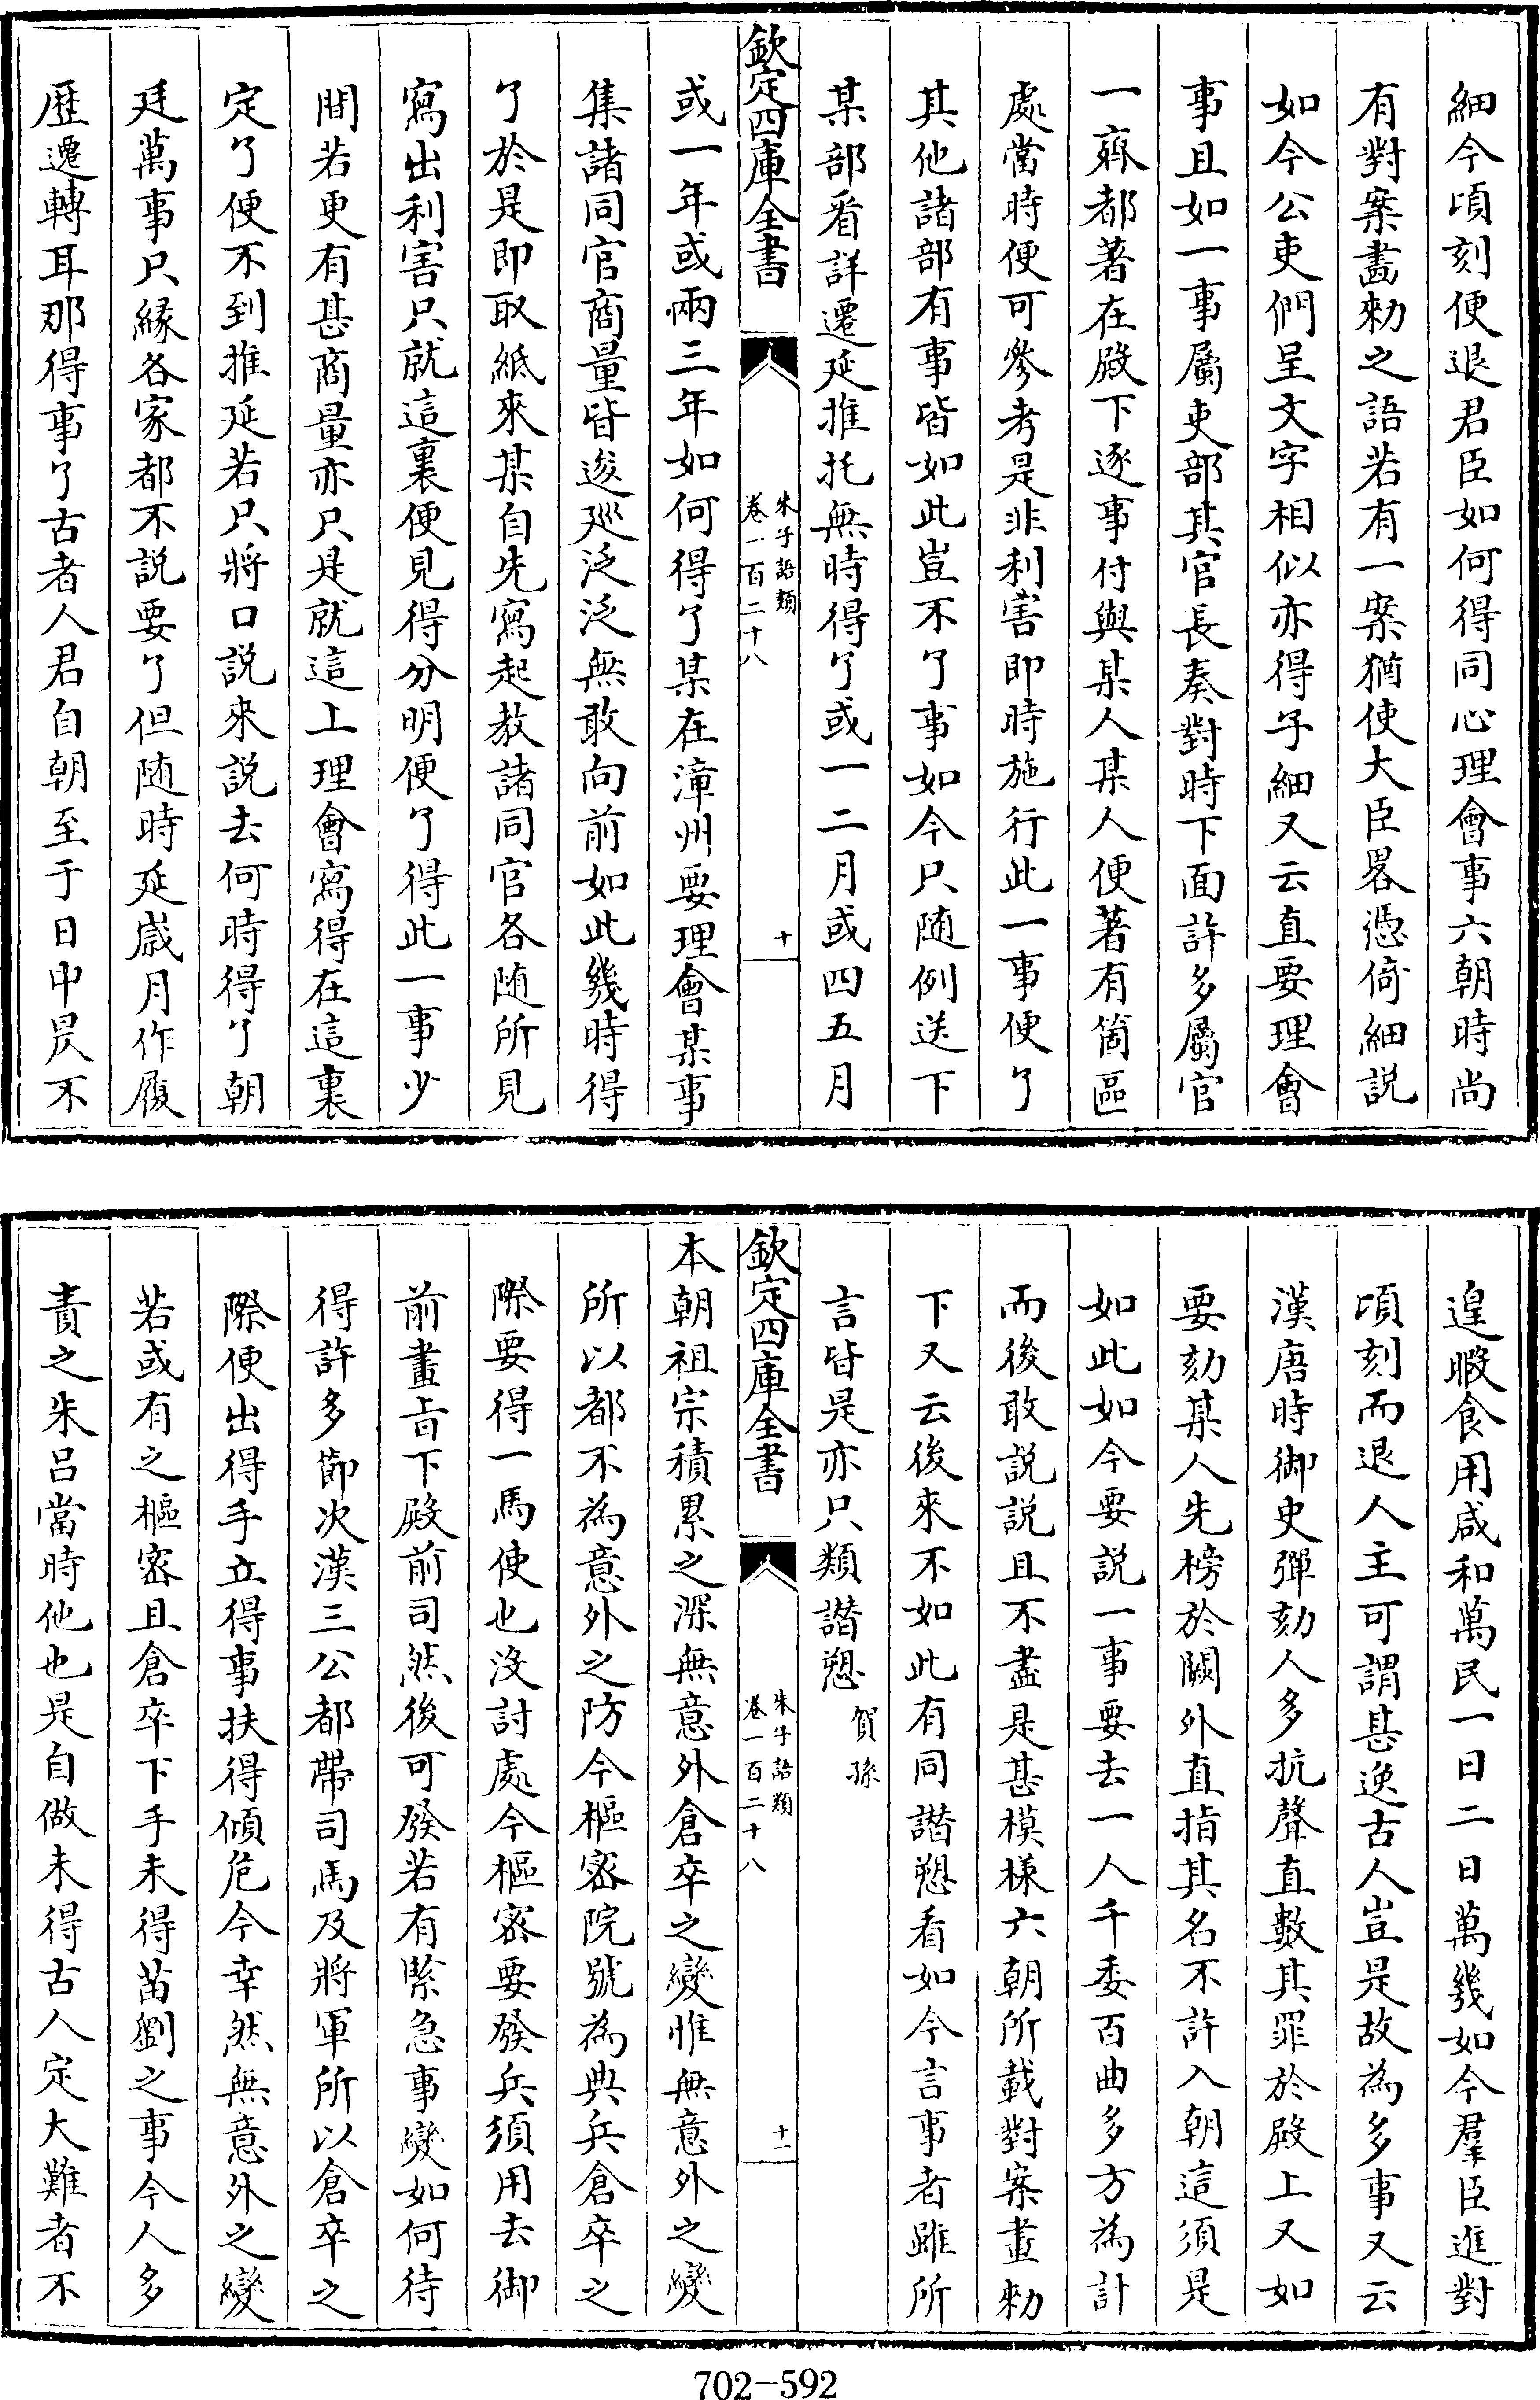 細今頃刻便退君臣如何得同心理會事六朝時尚
有對案畵勅之語若有一案猶使大臣畧憑倚細説
如今公吏們呈文字相似亦得子細又云直要理會
事且如一事屬吏部其官長奏對時下面許多屬官
一齊都著在殿下逐事付與某人某人便著有箇區
處當時便可參考是非利害即時施行此一事便了
其他諸部有事皆如此豈不了事如今只随例送下
某部看詳遷延推托無時得了或一二月或四五月
欽定四庫全書
朱子語類
卷一百二十八
十
或一年或兩三年如何得了某在漳州要理會某事
集諸同官商量皆逡廵泛泛無敢向前如此幾時得
了於是即取紙來某自先寫起教諸同官各随所見
寫出利害只就這裏便見得分明便了得此一事少
間若更有甚商量亦只是就這上理會寫得在這裏
定了便不到推延若只將口説來説去何時得了朝
廷萬事只縁各家都不説要了但随時延嵗月作履
歴遷轉耳那得事了古者人君自朝至于日中昃不
遑暇食用咸和萬民一日二日萬幾如今羣臣進對
頃刻而退人主可謂甚逸古人豈是故為多事又云
漢唐時御史彈劾人多抗聲直數其罪於殿上又如
要劾某人先榜於闕外直指其名不許入朝這須是
如此如今要説一事要去一人千委百曲多方為計
而後敢説説且不盡是甚模様六朝所載對案畫勅
下又云後來不如此有同譖愬看如今言事者雖所
言皆是亦只類譖愬賀孫
欽定四庫全書
朱子語類
卷一百二十八
十一
本朝祖宗積累之深無意外倉卒之變惟無意外之變
所以都不為意外之防今樞宻院號為典兵倉卒之
際要得一馬使也没討處今樞宻要發兵須用去御
前畫旨下殿前司然後可發若有緊急事變如何待
得許多節次漢三公都帶司馬及將軍所以倉卒之
際便出得手立得事扶得傾危今幸然無意外之變
若或有之樞宻且倉卒下手未得苗劉之事今人多
責之朱吕當時他也是自做未得古人定大難者不
702-592